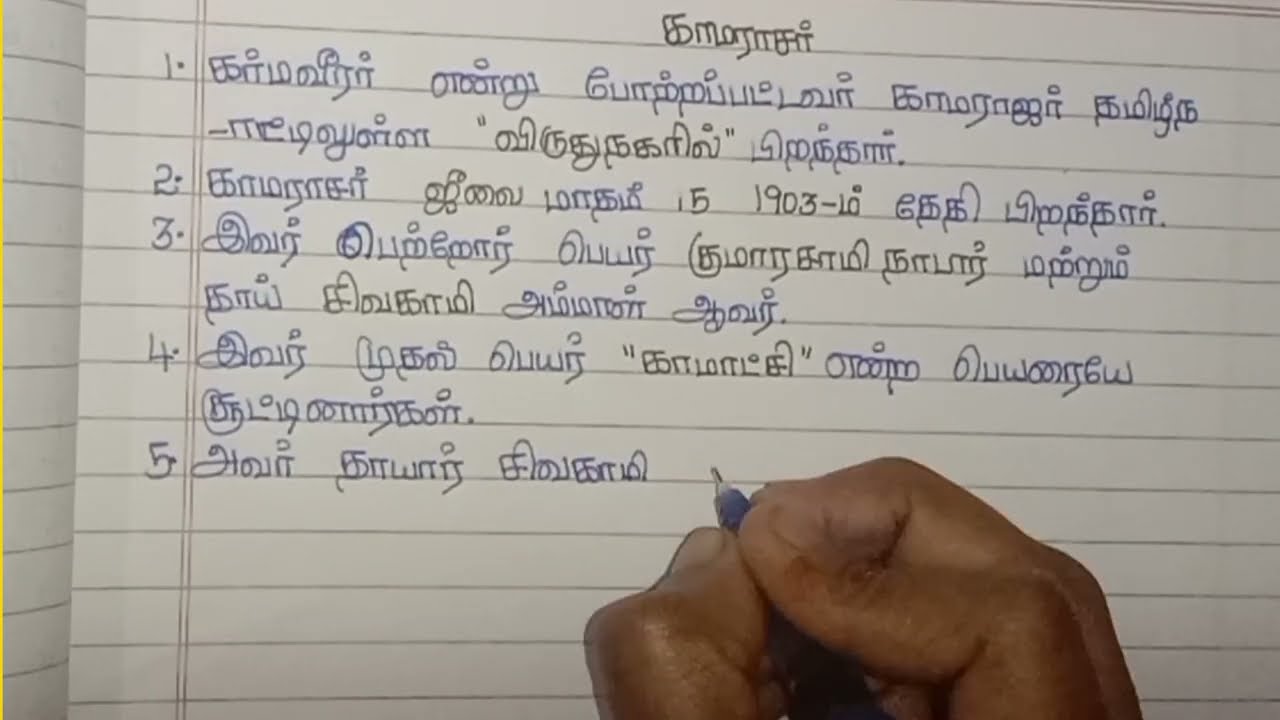 காமராசர்
1. கர்மவீரர் என்று போற்றப்பட்டவர் காமராஜர் தமிழ்நா
-ட்டிலுள்ள "விருதுநகரில்" பிறந்தார்.
2. காமராசர் ஜீலை மாதம் 15 1903-ம் தேதி பிறந்தார்.
3. இவர் பெற்றோர் பெயர் குமாரசாமி நாடார் மற்றும்
தாய் சிவகாமி அம்மாள் ஆவர்.
4. இவர் முதல் பெயர் "காமாட்சி" என்ற பெயரையே
சூட்டினார்கள்.
5. அவர் தாயார் சிவகாமி